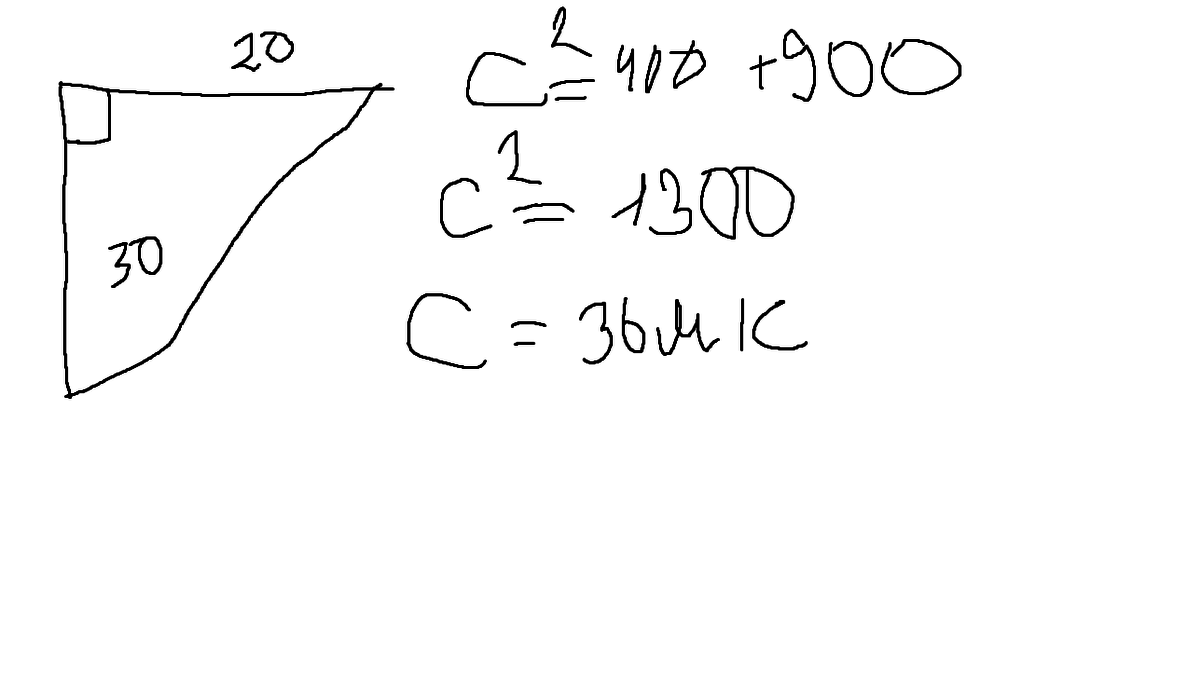 20
C²=400 +900
C²= 1300
30
C = 36мк